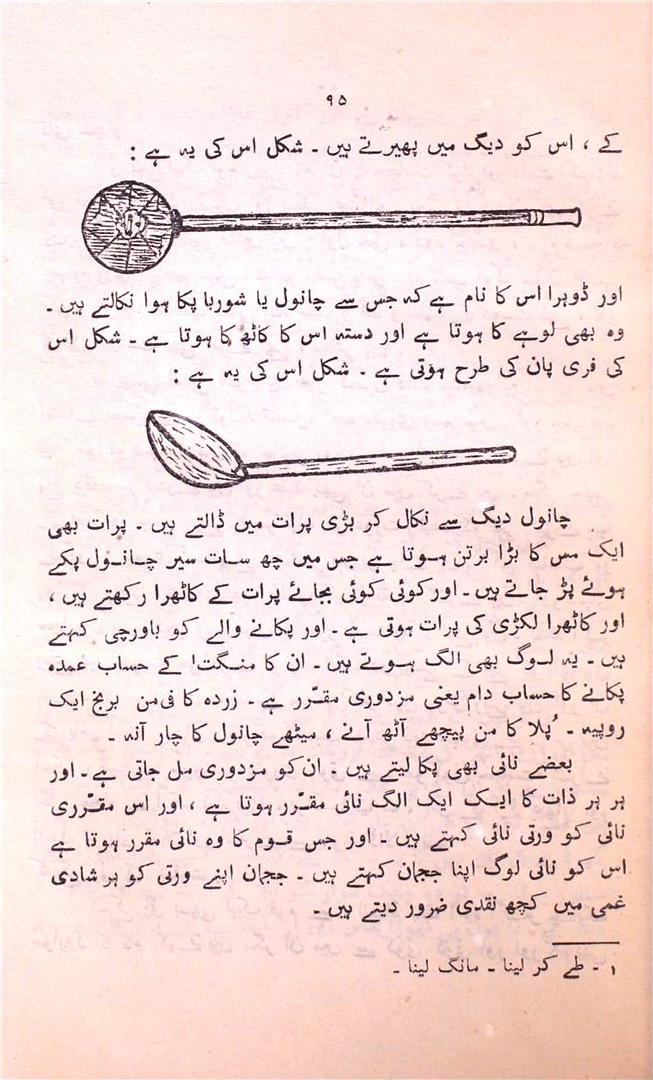 ۹۵
کے ، اس کو دیگ میں پھیرتے ہیں ۔ شکل اس کی یہ ہے :
اور ڈوہرا اس کا نام ہے کہ جس سے چانول یا شوربا پکا ہوا نکالتے ہیں ۔
وہ بھی لوہے کا ہوتا ہے اور دستہ اس کا کاٹھ کا ہوتا ہے ۔ شکل اس
کی فری پان کی طرح ہوتی ہے ۔ شکل اس کی یہ ہے :
چانول دیگ سے نکال کر بڑی پرات میں ڈالتے ہیں ۔ پرات بھی
ایک مس کا بڑا برتن ہوتا ہے جس میں چھ سات سیر چانول پکے
ہوئے پڑ جاتے ہیں ۔ اور کوئی کوئی بجائے پرات کے کاٹھرا رکھتے ہیں ،
اور کاٹھرا لکڑی کی پرات ہوتی ہے ۔ اور پکانے والے کو باورچی کہتے
ہیں ۔ یہ لوگ بھی الگ ہوتے ہیں ۔ ان کا منگت۱ کے حساب عمدہ
پکانے کا حساب دام یعنی مزدوری مقرّر ہے ۔ زردہ کا فی من برنج ایک
روپیہ ۔ پُلا کا من پیچھے آٹھ آنے ، میٹھے چانول کا چار آنہ ۔
بعضے نائی بھی پکا لیتے ہیں ۔ ان کو مزدوری مل جاتی ہے ۔ اور
ہر ہر ذات کا ایک ایک الگ نائی مقرّر ہوتا ہے ، اور اس مقرّری
نائی کو ورتی نائی کہتے ہیں ۔ اور جس قوم کا وہ نائی مقرر ہوتا ہے
اس کو نائی لوگ اپنا ججمان کہتے ہیں ۔ ججمان اپنے ورتی کو ہر شادی
غمی میں کچھ نقدی ضرور دیتے ہیں ۔
۱ ۔ طے کر لینا ۔ مانگ لینا ۔